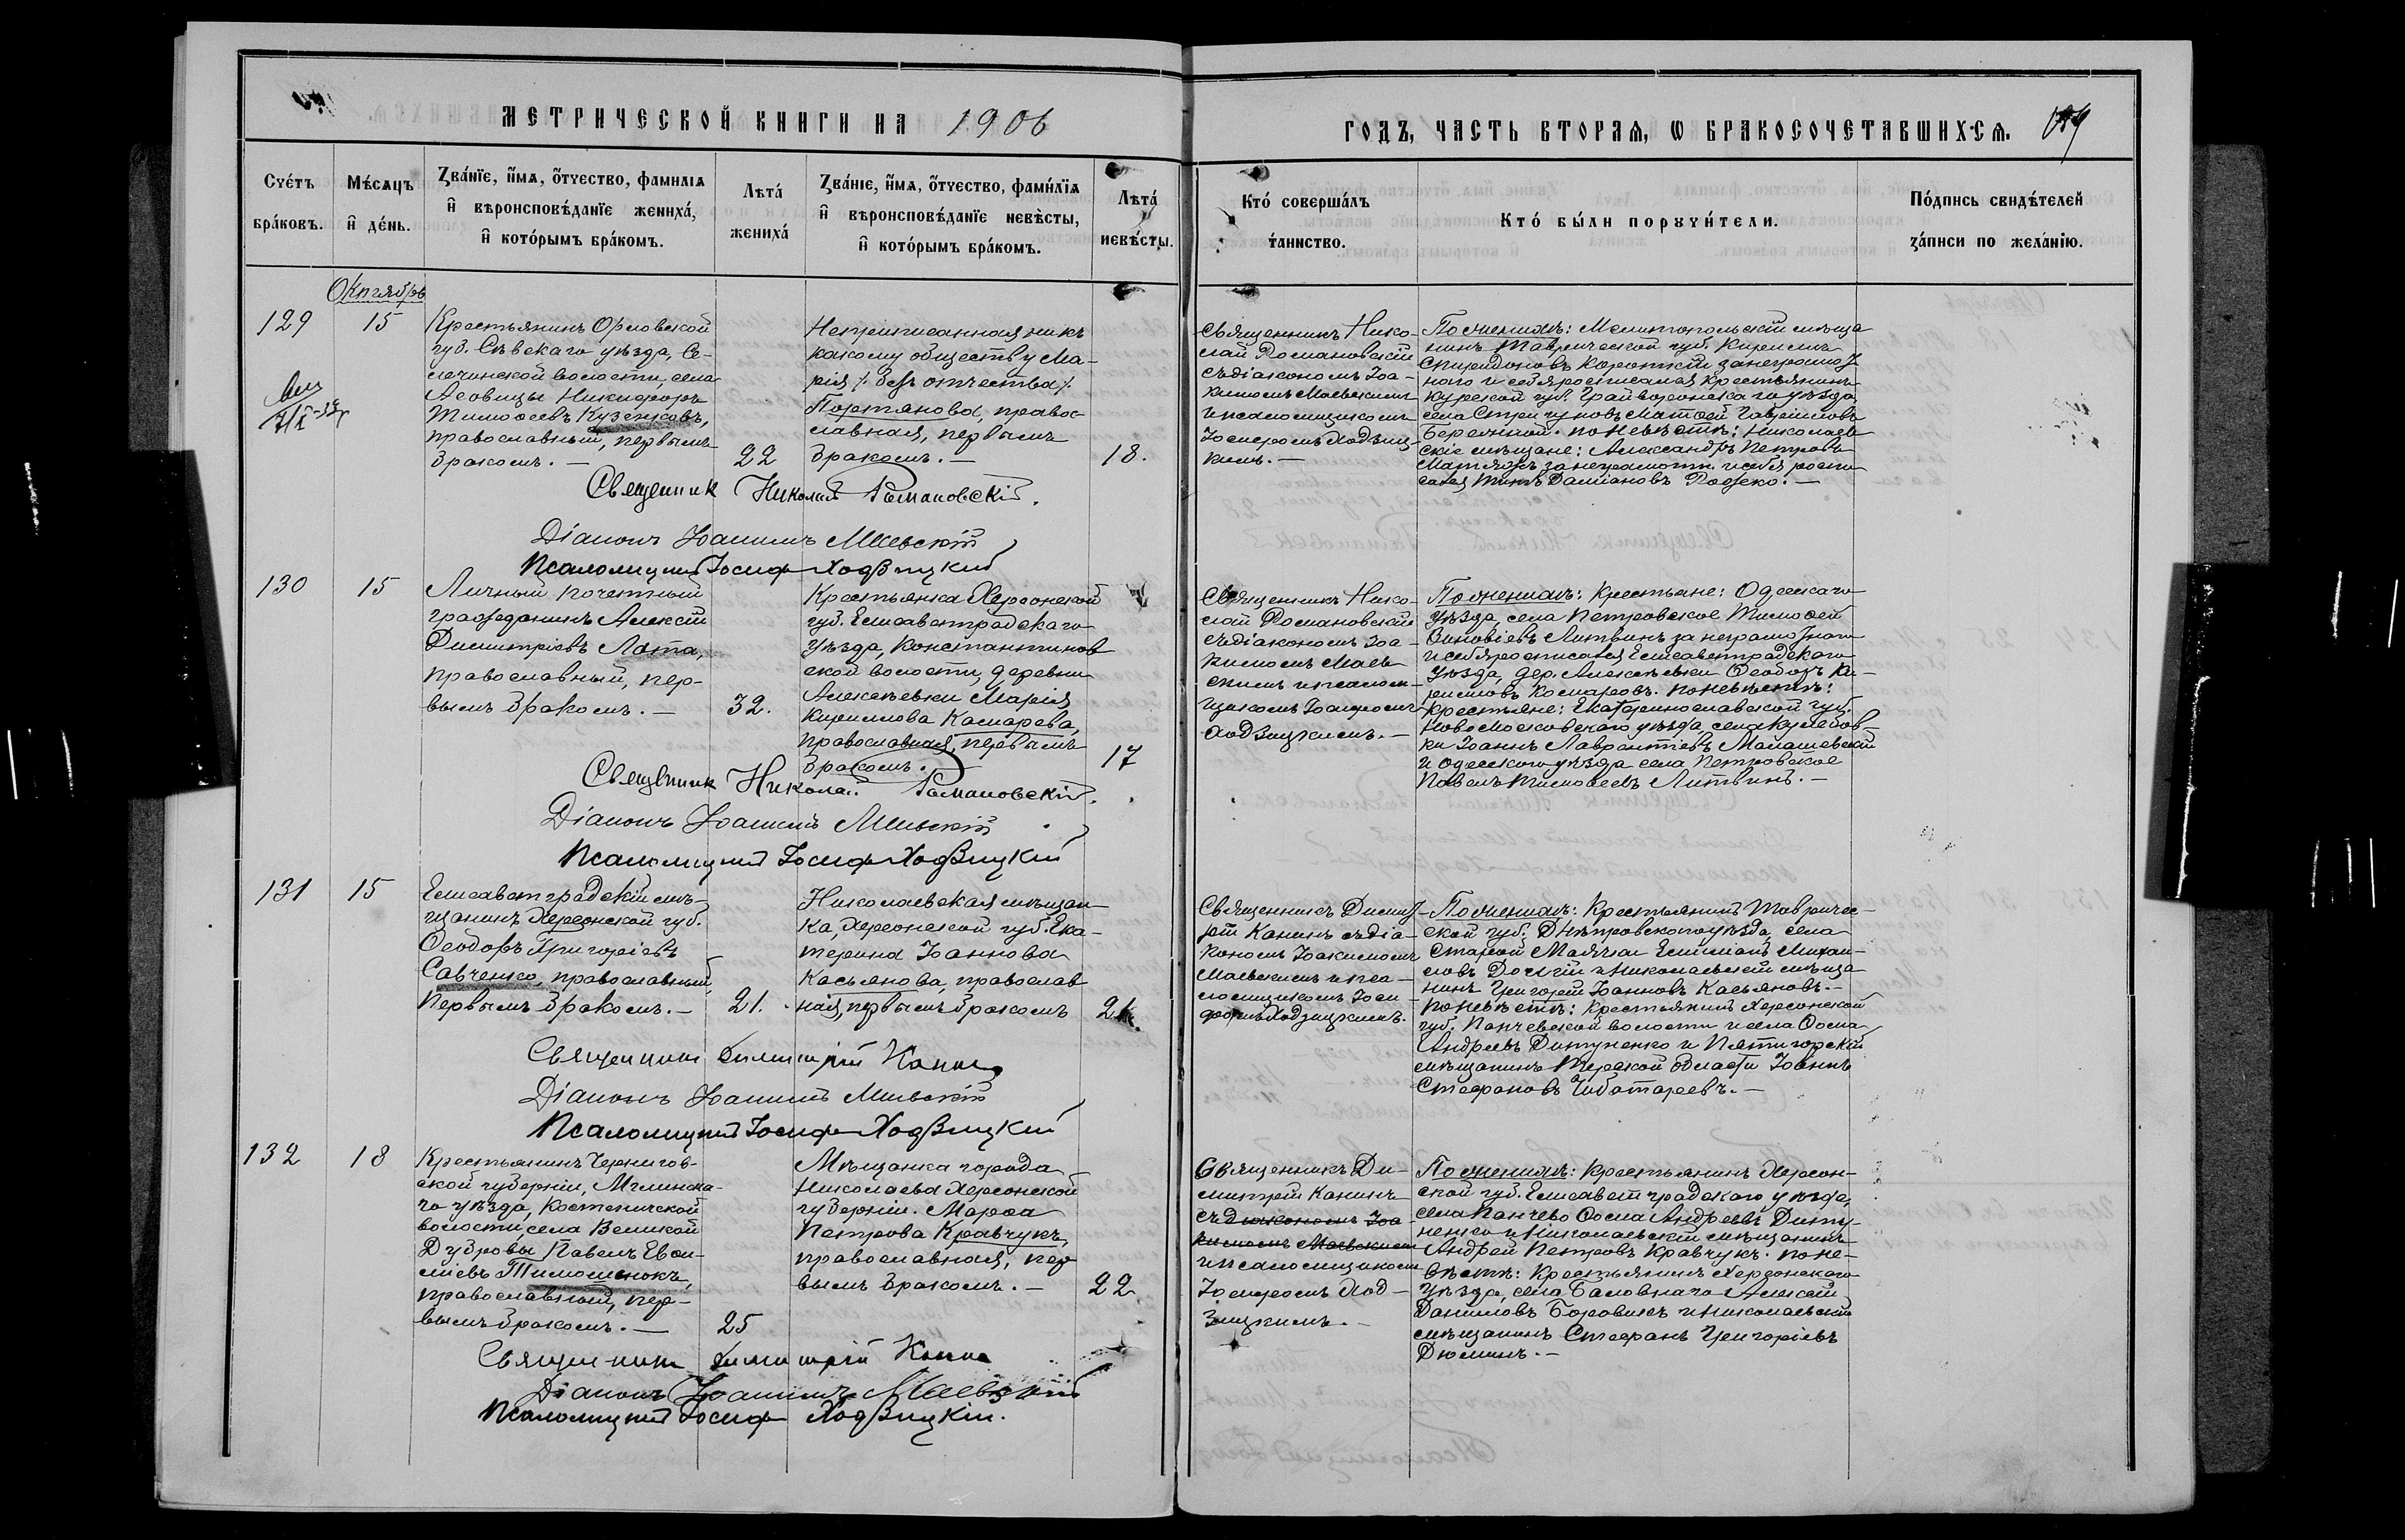 МЕТРИЧЕСКОЙ КНИГИ НА 1906
ГОДЪ, ЧАСТЬ ВТОРАѦ, Ѡ БРАКОСОЧЕТАВШИХСѦ.
Счéтъ бра́ковъ.
Мѣ́сѧцъ и҆ де́нь.
Ꙁва́нїе, и҆́мѧ, о҆́тчество, фамилїѧ
и҆ вѣроисповѣ́данїе жениха́,
и҆ кото́рымъ бра́комъ.
Лѣта́
жениха́
Ꙁва́нїе, и҆́мѧ, о҆́тчество, фами́лїѧ
и҆ вѣроисповѣ́данїе невѣ́сты,
и҆ кото́рымъ бра́комъ.
Лѣта́
невѣ́сты.
Кто́ соверша́лъ
та́инство.
Кто́ бы́ли порꙋчи́тели.
По́дпись свидѣ́телей
ꙁа́писи по жела́нїю.
Октябрь
129
15
Крестьянинъ Орловской
губ. Сѣвскаго уѣзда, Се-
лечинской волости, села
Асовицы Никифоръ
Тимоѳеевъ Кузенковъ,
православный, первымъ
бракомъ. —
22
Неприписанная ни къ
какому обществу Ма-
рія /. безъ отчества /.
Портянова, правос-
лавная, первымъ
бракомъ. —
18.
Священникъ Нико-
лай Романовскій
съ діакономъ Іоа-
кимомъ Маевскимъ
и псаломщикомъ
Іосифомъ Ходзиц-
кимъ. —
По женихѣ: Мелитопольскій мѣща
нинъ Таврической губ. Кириллъ
Спиридоновъ Короткій за неграмот-
наго и себя росписался крестьянинъ
Курской губ. Грайворонскаго уѣзда,
села Стригуновъ Матѳей Гавріиловъ
По невѣстѣ: Николаев
скіе мѣщане: Александръ Петровъ
за неграмотн. и себя роспи
сался Титъ Даміановъ
Священникъ Николай Романовскій.
Діаконъ Іоакимъ Маевскій
Псаломщикъ Іосифъ Ходзицкій
130
15
Личный почетный
гражданинъ Алексій
Димитріевъ Лата,
православный, пер-
вымъ бракомъ. —
32.
Крестьянка Херсонской
губ. Елисаветградскаго
уѣзда, Константинов
ской волости, деревни
Алексѣевки Марія
Кириллова Камарева,
православная, первымъ
бракомъ.
17
Священникъ Нико-
лай Романовскій
съ діакономъ Іоа-
кимомъ Маев-
скимъ и псалом-
щикомъ Іосифомъ
Ходзицкимъ. —
По женихѣ: Крестьяне: Одесскаго
уѣзда, села Петровское Тимоѳей
Зиновіевъ Литвинъ за неграмотнаго
и себя росписался Елисаветградскаго
уѣзда, дер. Алексѣевки Ѳеодоръ Ки-
рилловъ Комаревъ. По невѣстѣ:
крестьяне: Екатеринославской губ.
Новомосковскаго уѣзда, села Кулебов-
ки Іоаннъ Лаврентіевъ Малашевскій
и Одесскаго уѣзда села Петровское
Павелъ Тимоѳеевъ Литвинъ. —
Священникъ Николай Романовскій.
Діаконъ Іоакимъ Маевскій
Псаломщикъ Іосифъ Ходзицкій
131
15
Елисаветградскій мѣ-
щанинъ Херсонской губ.
Ѳеодоръ Григоріевъ
Савченко, православный,
первымъ бракомъ. —
21.
Николаевская мѣщан-
ка, Херсонской губ. Ека-
терина Іоаннова
Касьянова, православ
ная, первымъ бракомъ
Священникъ Димит-
рій Канинъ съ діа-
кономъ Іоакимомъ
Маевскимъ и пса-
ломщикомъ Іоси-
фомъ Ходзицкимъ.
По женихѣ: Крестьянинъ Тавричес-
кой губ. Днѣпровскаго уѣзда, села
Старой Маячки Емиліанъ Михаи-
ловъ Долгій и Николаевскій мѣща-
нинъ Григорій Іоанновъ Касьяновъ. —
По невѣстѣ: Крестьянинъ Херсонской
губ. Панчевской волости и села Ѳома
Андреевъ Дитуненко и Пятигорскій
мѣщанинъ Терской области Іоаннъ
Стефановъ Чеботаревъ. —
Священникъ Димитрій Канинъ
Діаконъ Іоакимъ Маевскій
Псаломщикъ Іосифъ Ходзицкій
132
18
Крестьянинъ Чернигов-
ской губерніи, Мглинска-
го уѣзда, Костеничской
волости, села Великой
Дубровы Павелъ Евѳи-
міевъ Тимошенокъ,
православный, пер-
вымъ бракомъ. —
25
Мѣщанка города
Николаева Херсонской
губерніи. Марѳа
Петрова Кравчукъ,
православная, пер
вымъ бракомъ. —
22.
Священникъ Ди-
митрій Канинъ
съ діакономъ Іоа-
кимомъ Маевскимъ
и псаломщикомъ
Іосифомъ Ход-
зицкимъ. —
По женихѣ: Крестьянинъ Херсон-
ской губ. Елисаветградскаго уѣзда,
села Панчево Ѳома Андреевъ Диту-
ненко и Николаевскій мѣщанинъ
Андрей Петровъ Кравчукъ. По не-
вѣстѣ: Крестьянинъ Херсонскаго
уѣзда, села Баловнаго Алексій
Даниловъ Боровикъ и Николаевскій
мѣщанинъ Стефанъ Григоріевъ
Дюминъ. —
Священникъ Димитрій Канинъ
Діаконъ Іоакимъ Маевскій
Псаломщикъ Іосифъ Ходзицкій.